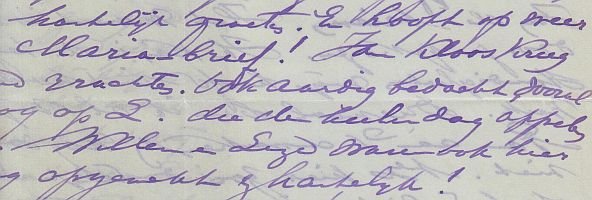 hartelijk groets. En hoopt op weer
Maria-brief! Jan Kloos kreeg
vruchten. Ook aardig bedacht vooral
op 2. die de heelen dag appels
Willem en waren ook hier
opgewekt & hartelijk!